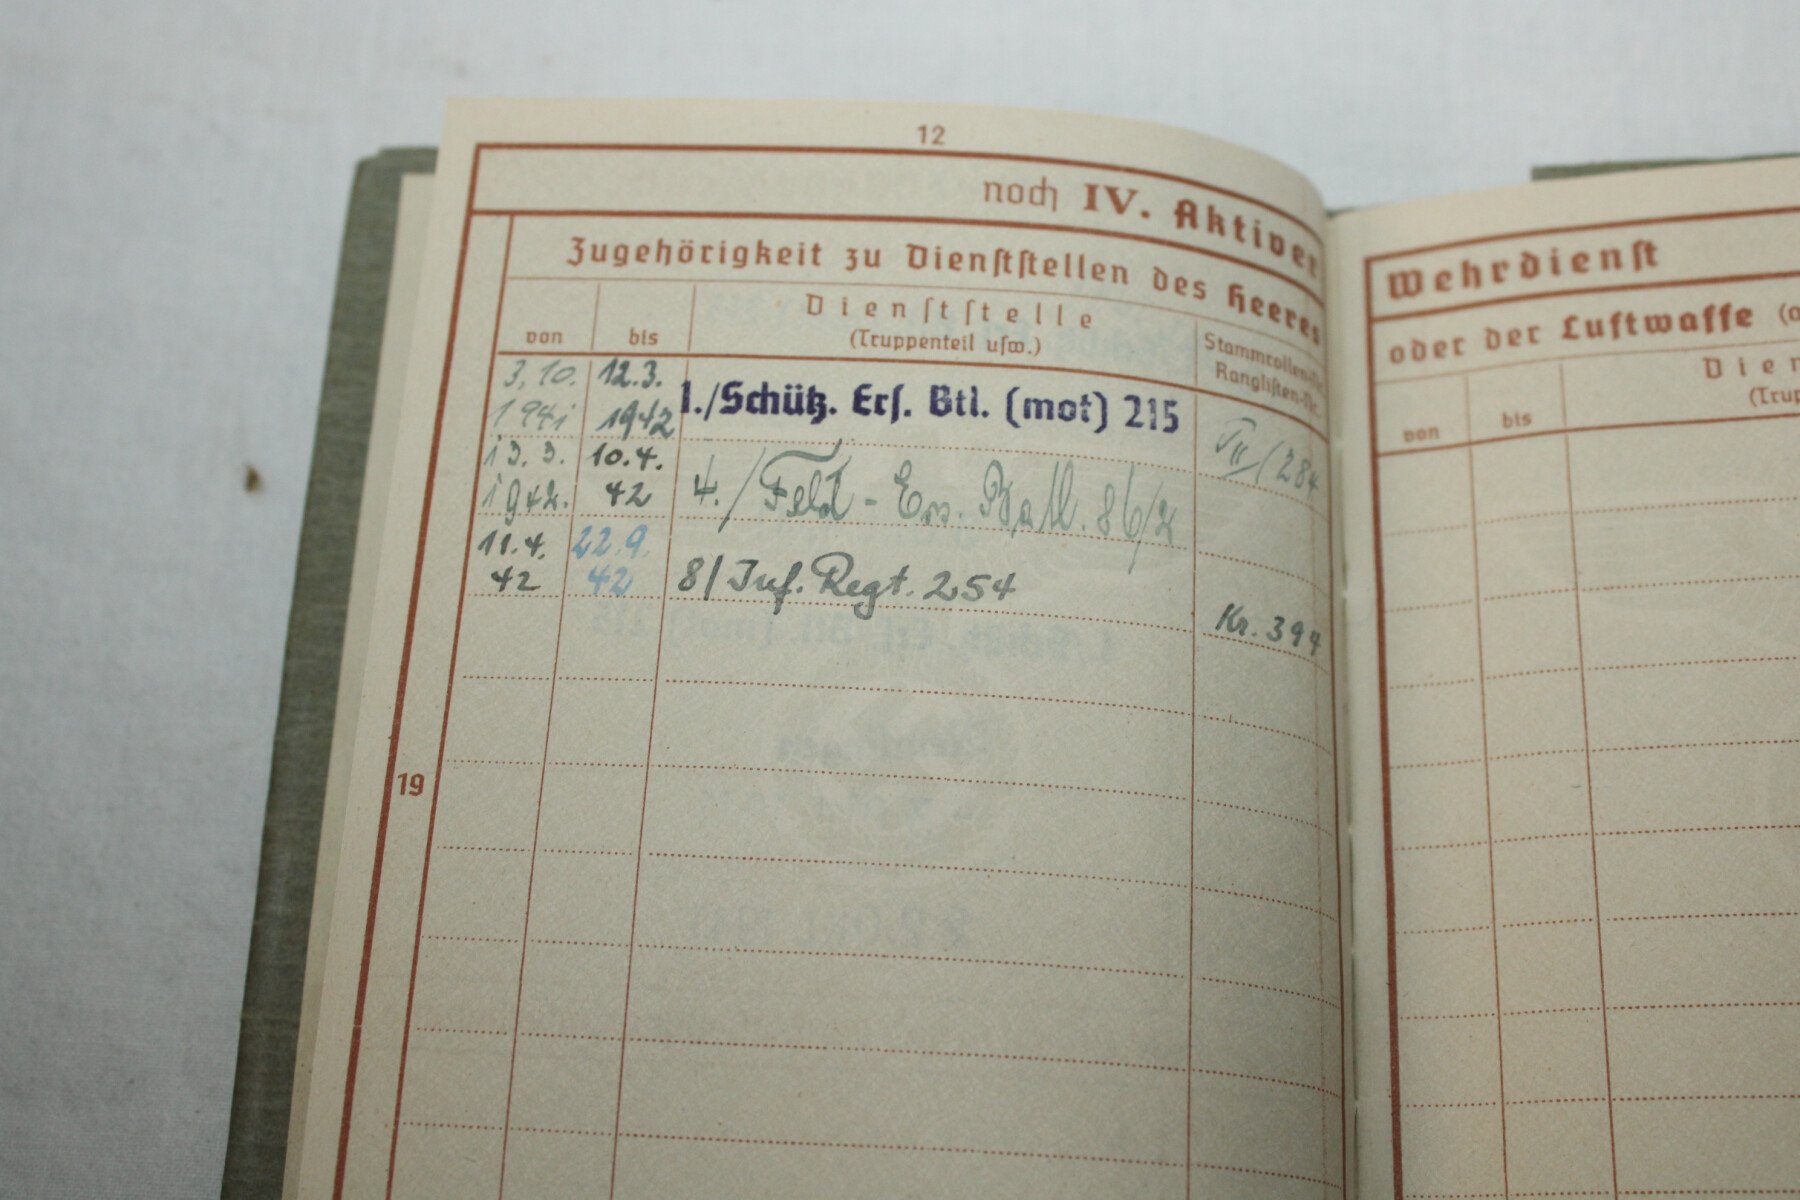 12
noch IV. Aktiver
Zugehörigkeit zu Dienststellen des Heeres
von
bis
Dienststelle
(Truppenteil usw.)
Stammrollen-
Ranglisten-
3.10. 1941
12.3. 1942
1./Schütz. Ers. Btl. (mot) 215
/284
13.3. 1942.
10.4. 42
4./Feld-Ers. Batl. 86/2
11.4. 42
22.9. 42
8/Inf. Regt. 254
Kr. 394
19
Wehrdienst
oder der Luftwaffe
von
bis
Dien
(Trup